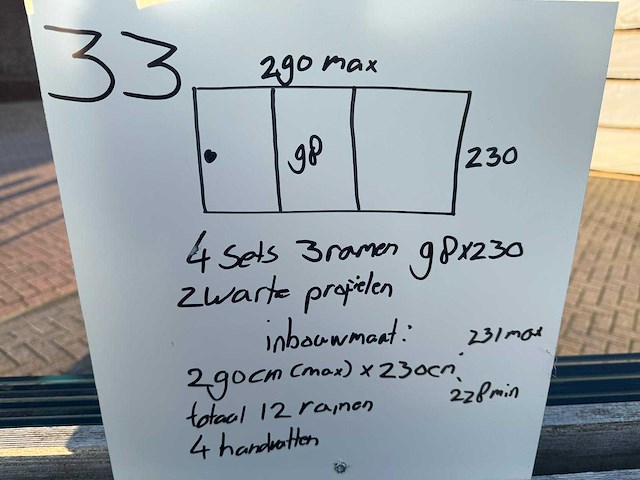 33
290 max
98
230
4 sets 3 ramen 98x230
zwarte profielen
inbouwmaat:
231 max
290cm (max) x 230cm
228 min
totaal 12 ramen
4 handvatten